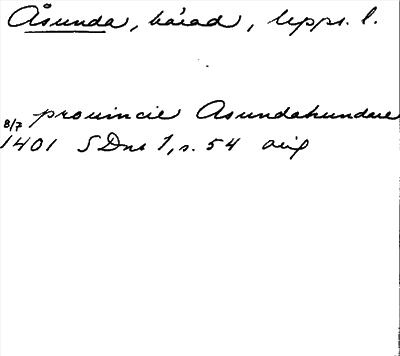 Åsunda, härad, Upps. l.
provincie Asundahundare
8/7
1401 SDns 1, s. 54 orig